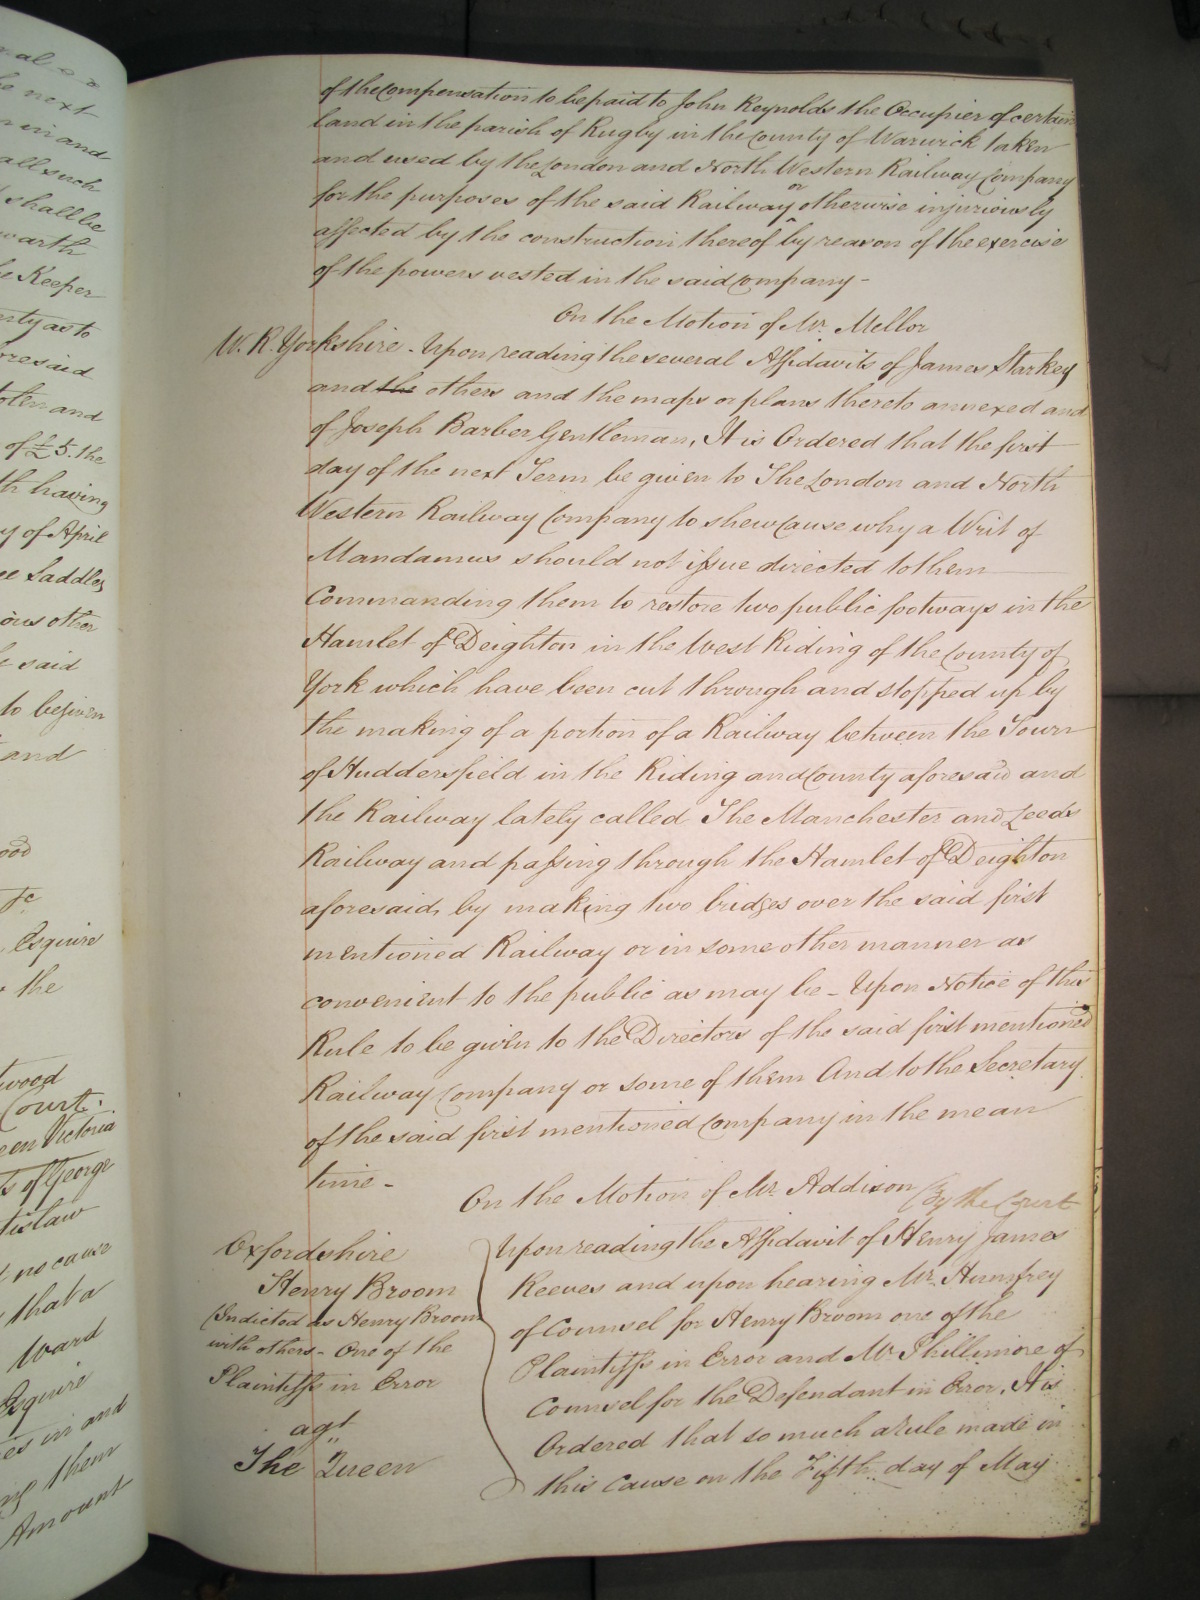 of the Compensation to be paid to John Reynolds the Occupier of certain
land in the parish of Rugby in the County of Warwick taken
and used by the London and North Western Railway Company
for the purposes of the said Railway or otherwise injuriously
affected by the construction thereof by reason of the exercise
of the powers vested in the said Company -
On the Motion of Mr. Mellor
W. R. Yorkshire - Upon reading the several Affidavits of James Starkey
and the others and the maps or plans thereto annexed and
of Joseph Barber Gentleman, It is Ordered that the first
day of the next Term be given to The London and North
Western Railway Company to shew Cause why a Writ of
Mandamus should not issue directed to them
Commanding them to restore two public footways in the
Hamlet of Deighton in the West Riding of the County of
York which have been cut through and stopped up by
the making of a portion of a Railway between the Town
of Huddersfield in the Riding and County aforesaid and
the Railway lately called The Manchester and Leeds
Railway and passing through the Hamlet of Deighton
aforesaid, by making two bridges over the said first
mentioned Railway or in some other manner as
convenient to the public as may be - Upon Notice of this
Rule to be given to the Directors of the said first mentioned
Railway Company or some of them And to the Secretary
of the said first mentioned Company in the mean
time -
On the Motion of Mr. Addison By the Court
Oxfordshire
Henry Broom
(Indicted as Henry Broom
with others - One of the
Plaintiffs in Error
agt.
The Queen
Upon reading the Affidavit of Henry James
Reeves and upon hearing Mr. Humfrey
of Counsel for Henry Broom one of the
Plaintiffs in Error and Mr. Phillimore of
Counsel for the Defendant in Error, It is
Ordered that so much a Rule made in
this Cause on the Fifth day of May